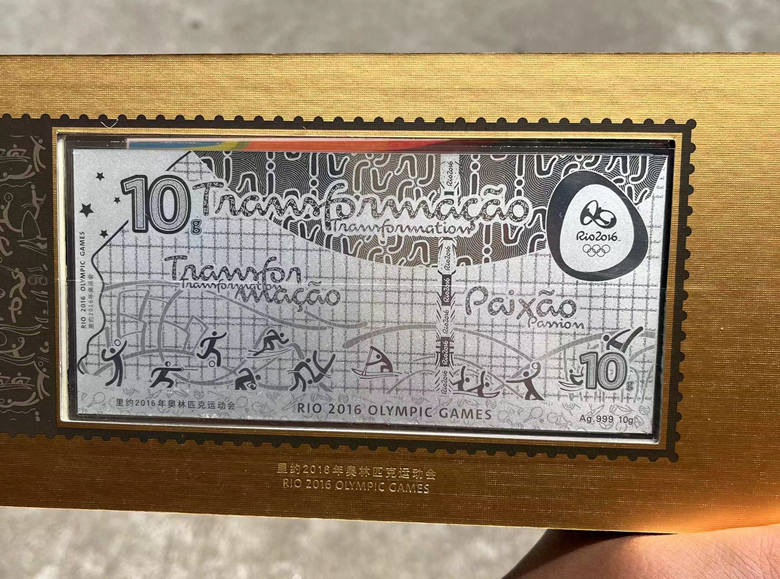 10g
Transformação
Transformation
Rio2016
RIO 2016 OLYMPIC GAMES
里约2016年奥运会
Transfor
Transformation
mação
Paixão
Passion
Rio2016
Rio2016
Rio2016
Rio2016
Rio2016
10g
里约2016年奥林匹克运动会
RIO 2016 OLYMPIC GAMES
Ag.999 10g
里约2016年奥林匹克运动会
RIO 2016 OLYMPIC GAMES